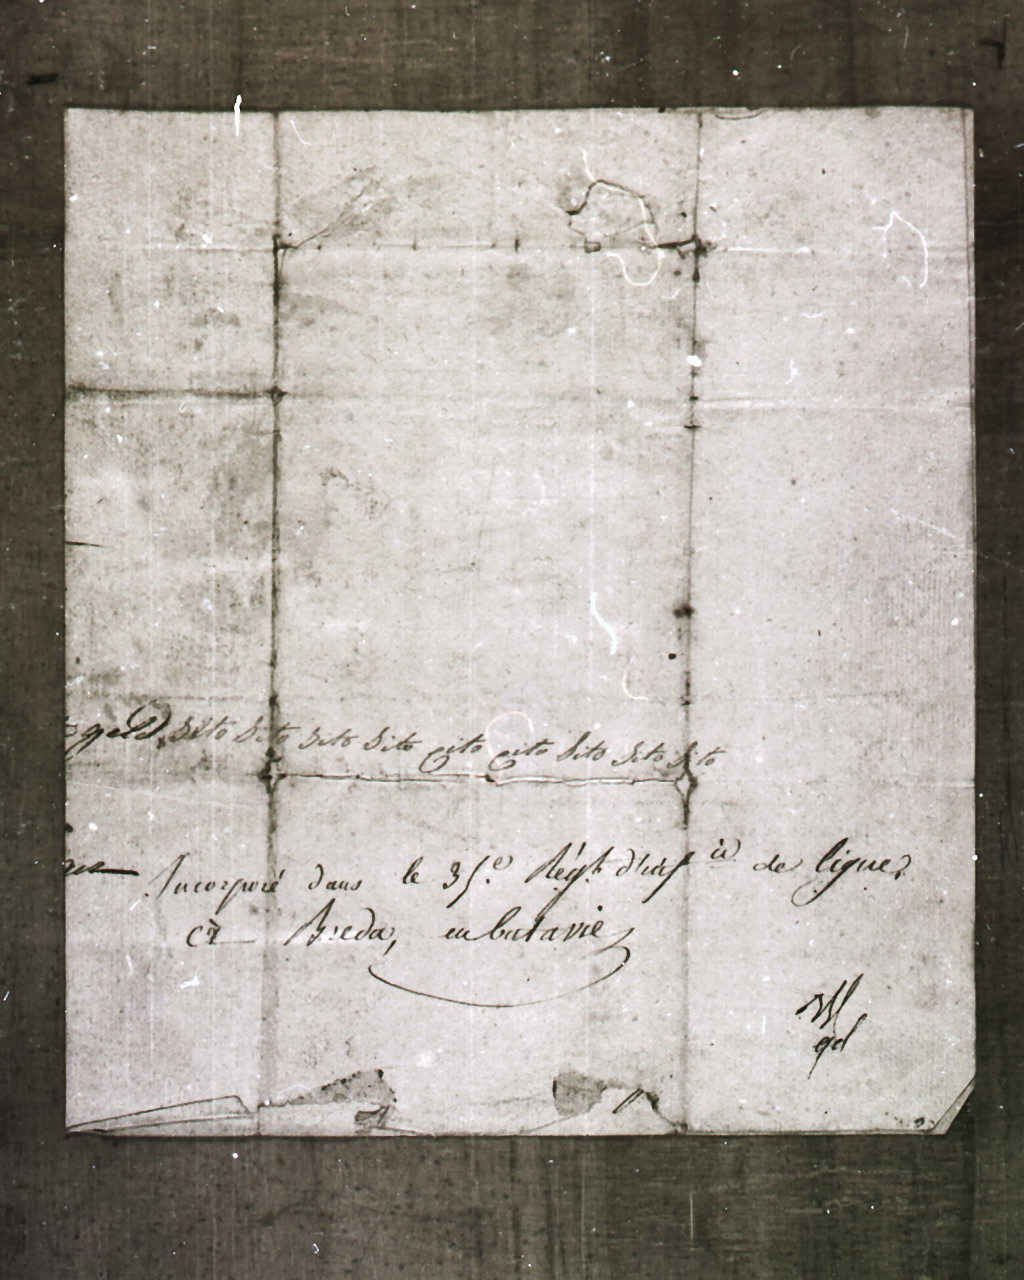 Sito Sito Sito Sito cito cito Sito Sito Sito
Incorporé dans le 35.e Régt. d'infie de ligne
à Breda, en batavie